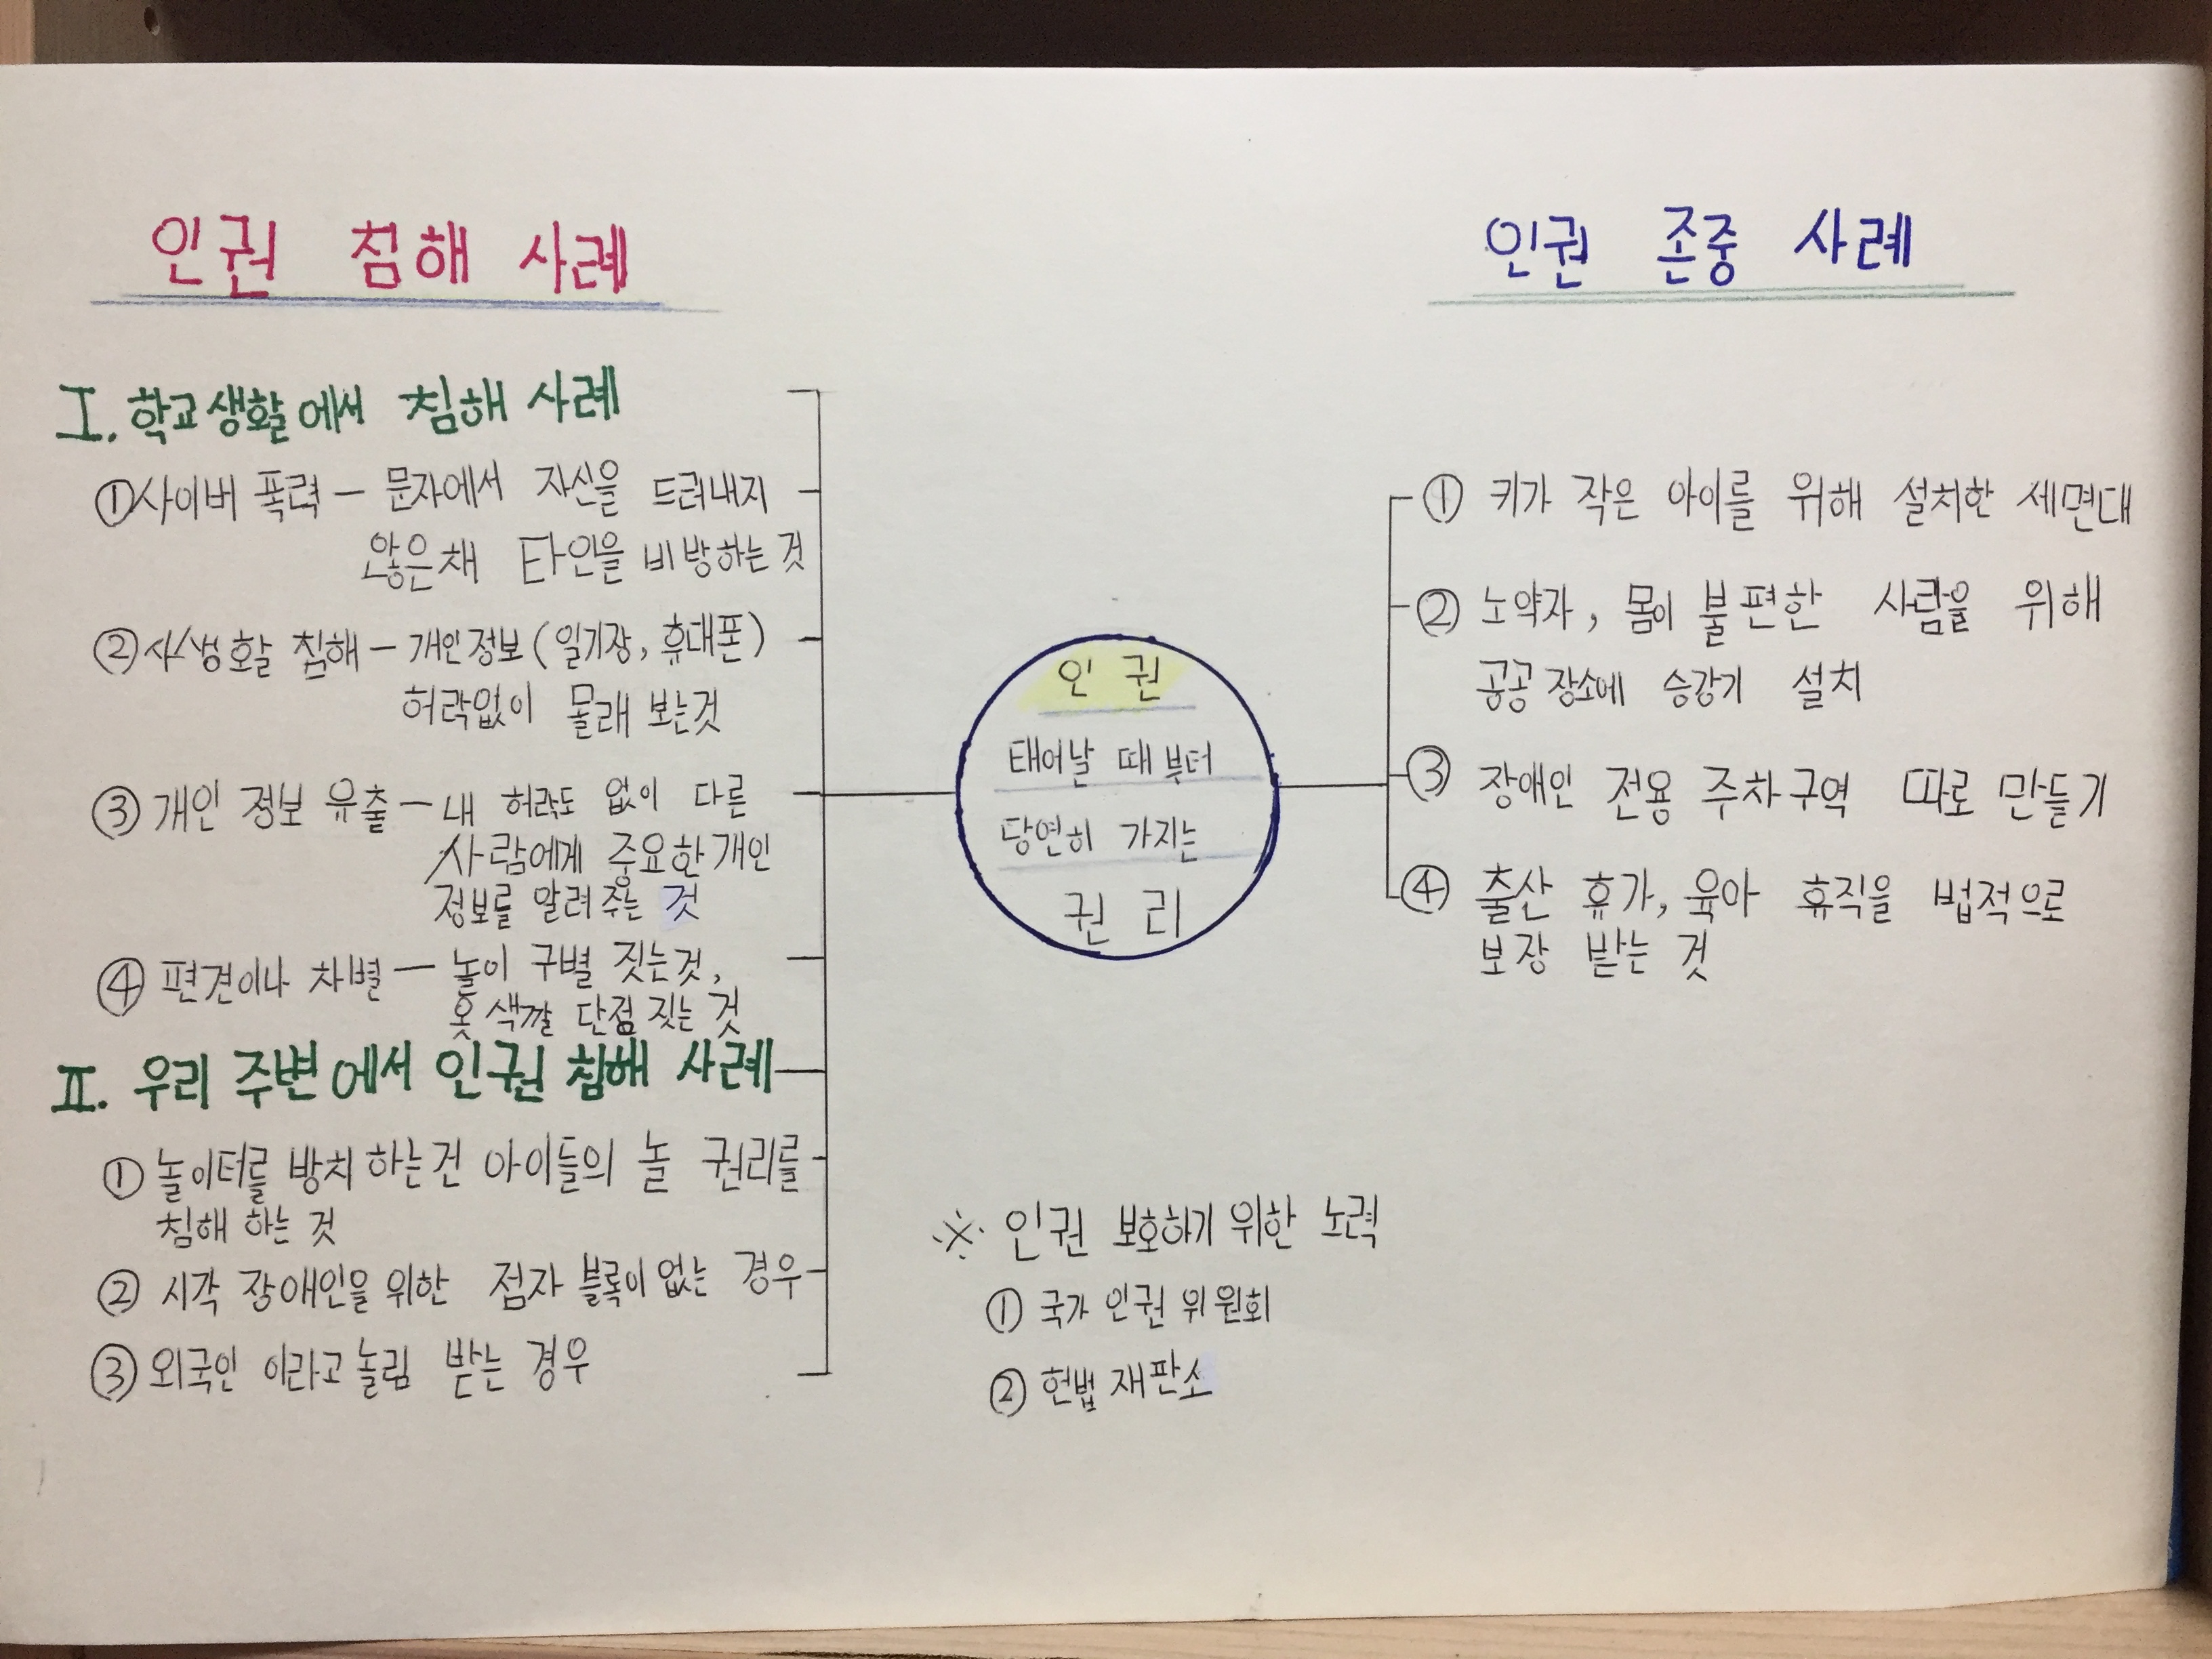 인권 침해 사례
I. 학교생활에서 침해 사례
① 사이버 폭력 - 문자에서 자신을 드러내지
않은채 타인을 비방하는 것
② 사생활 침해 - 개인정보(일기장, 휴대폰)
허락없이 몰래 보는것
③ 개인 정보 유출 - 내 허락도 없이 다른
사람에게 중요한 개인
정보를 알려주는 것
④ 편견이나 차별 - 놀이 구별 짓는것,
옷 색깔 단점 짓는 것
II. 우리 주변에서 인권 침해 사례
① 놀이터를 방치하는건 아이들의 놀 권리를
침해 하는 것
② 시각 장애인을 위한 점자 블록이 없는 경우
③ 외국인 이라고 놀림 받는 경우
인권
태어날 때 부터
당연히 가지는
권리
인권 존중 사례
① 키가 작은 아이를 위해 설치한 세면대
② 노약자, 몸이 불편한 사람을 위해
공공 장소에 승강기 설치
③ 장애인 전용 주차구역 따로 만들기
④ 출산 휴가, 육아 휴직을 법적으로
보장 받는 것
※ 인권 보호하기 위한 노력
① 국가 인권 위원회
② 헌법 재판소